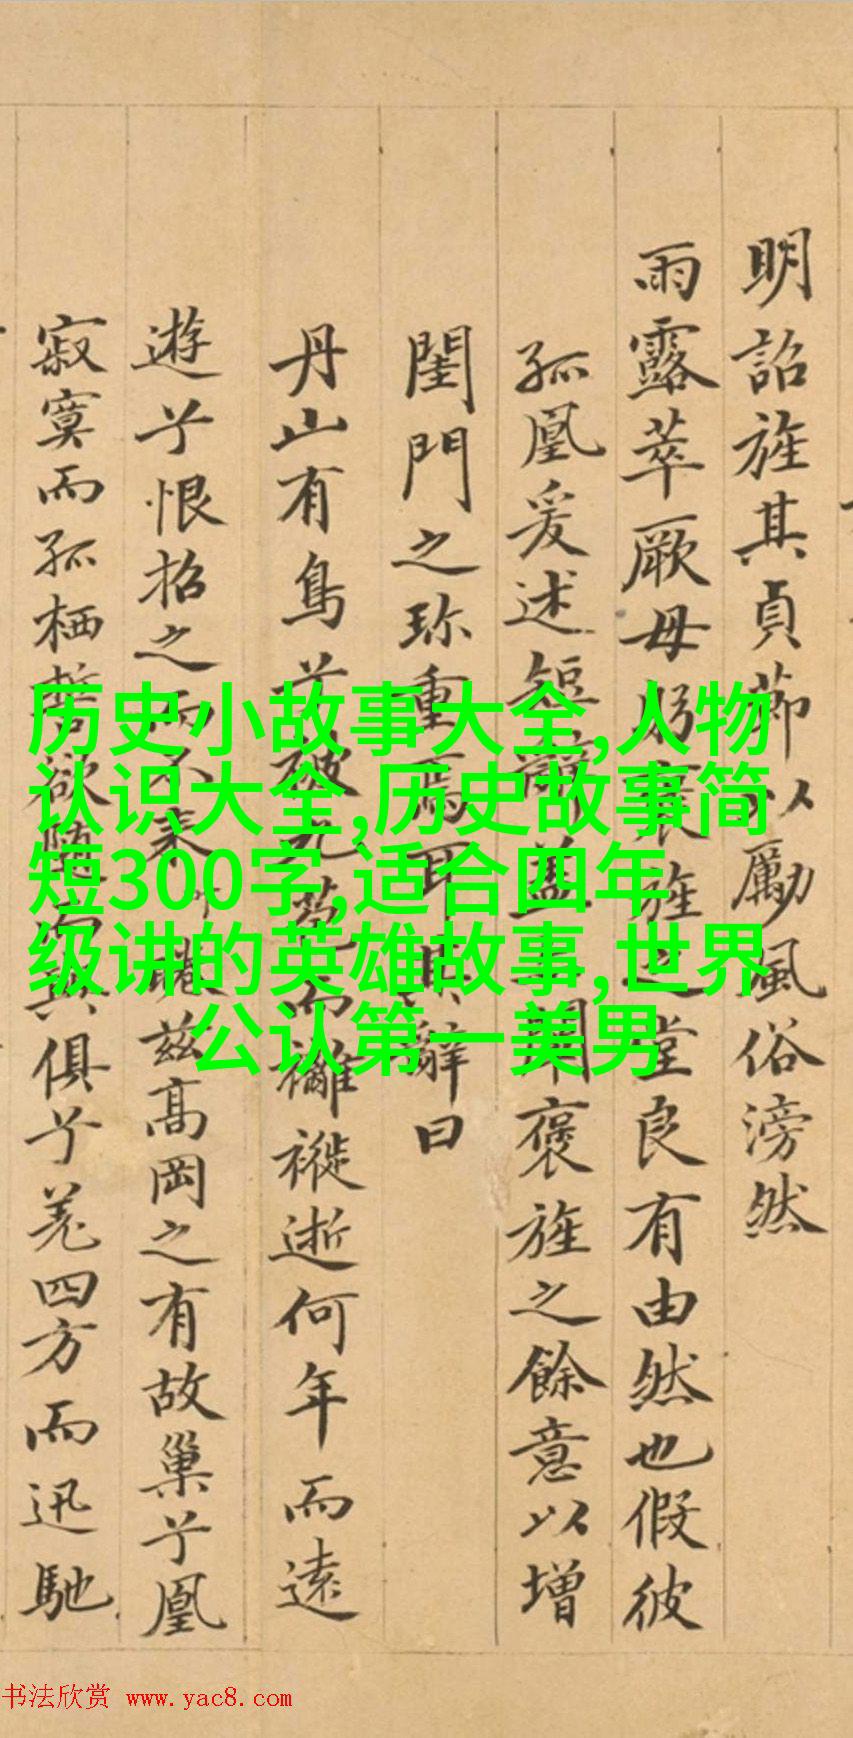 明詔旌其貞節以勵風俗滂然
雨露萃厥母躬褒旌之堂良有由然也假彼
孤凰爰述短辭蓋闡褒旌之餘意以增
閨門之珎重焉耳其辭曰
丹山有鳥兮彼九苞而襹褷逝何年而遠
遊兮恨招之而不来兮睠兹高岡之有故巢兮凰
寂寞而孤栖誓欲随而與俱兮羌四方而迅馳
历史小故事大全,人物
认识大全,历史故事简
短300字,适合四年
级讲的英雄故事,世界
公认第一美男
书法欣赏 www.yac8.com